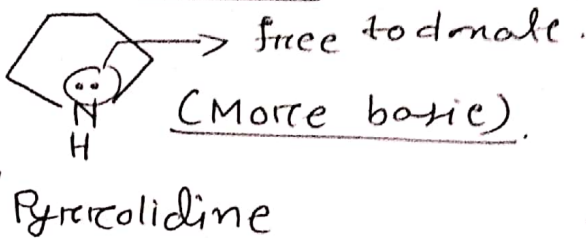 free to donate.
N
H
(More basic).
Pyrrolidine